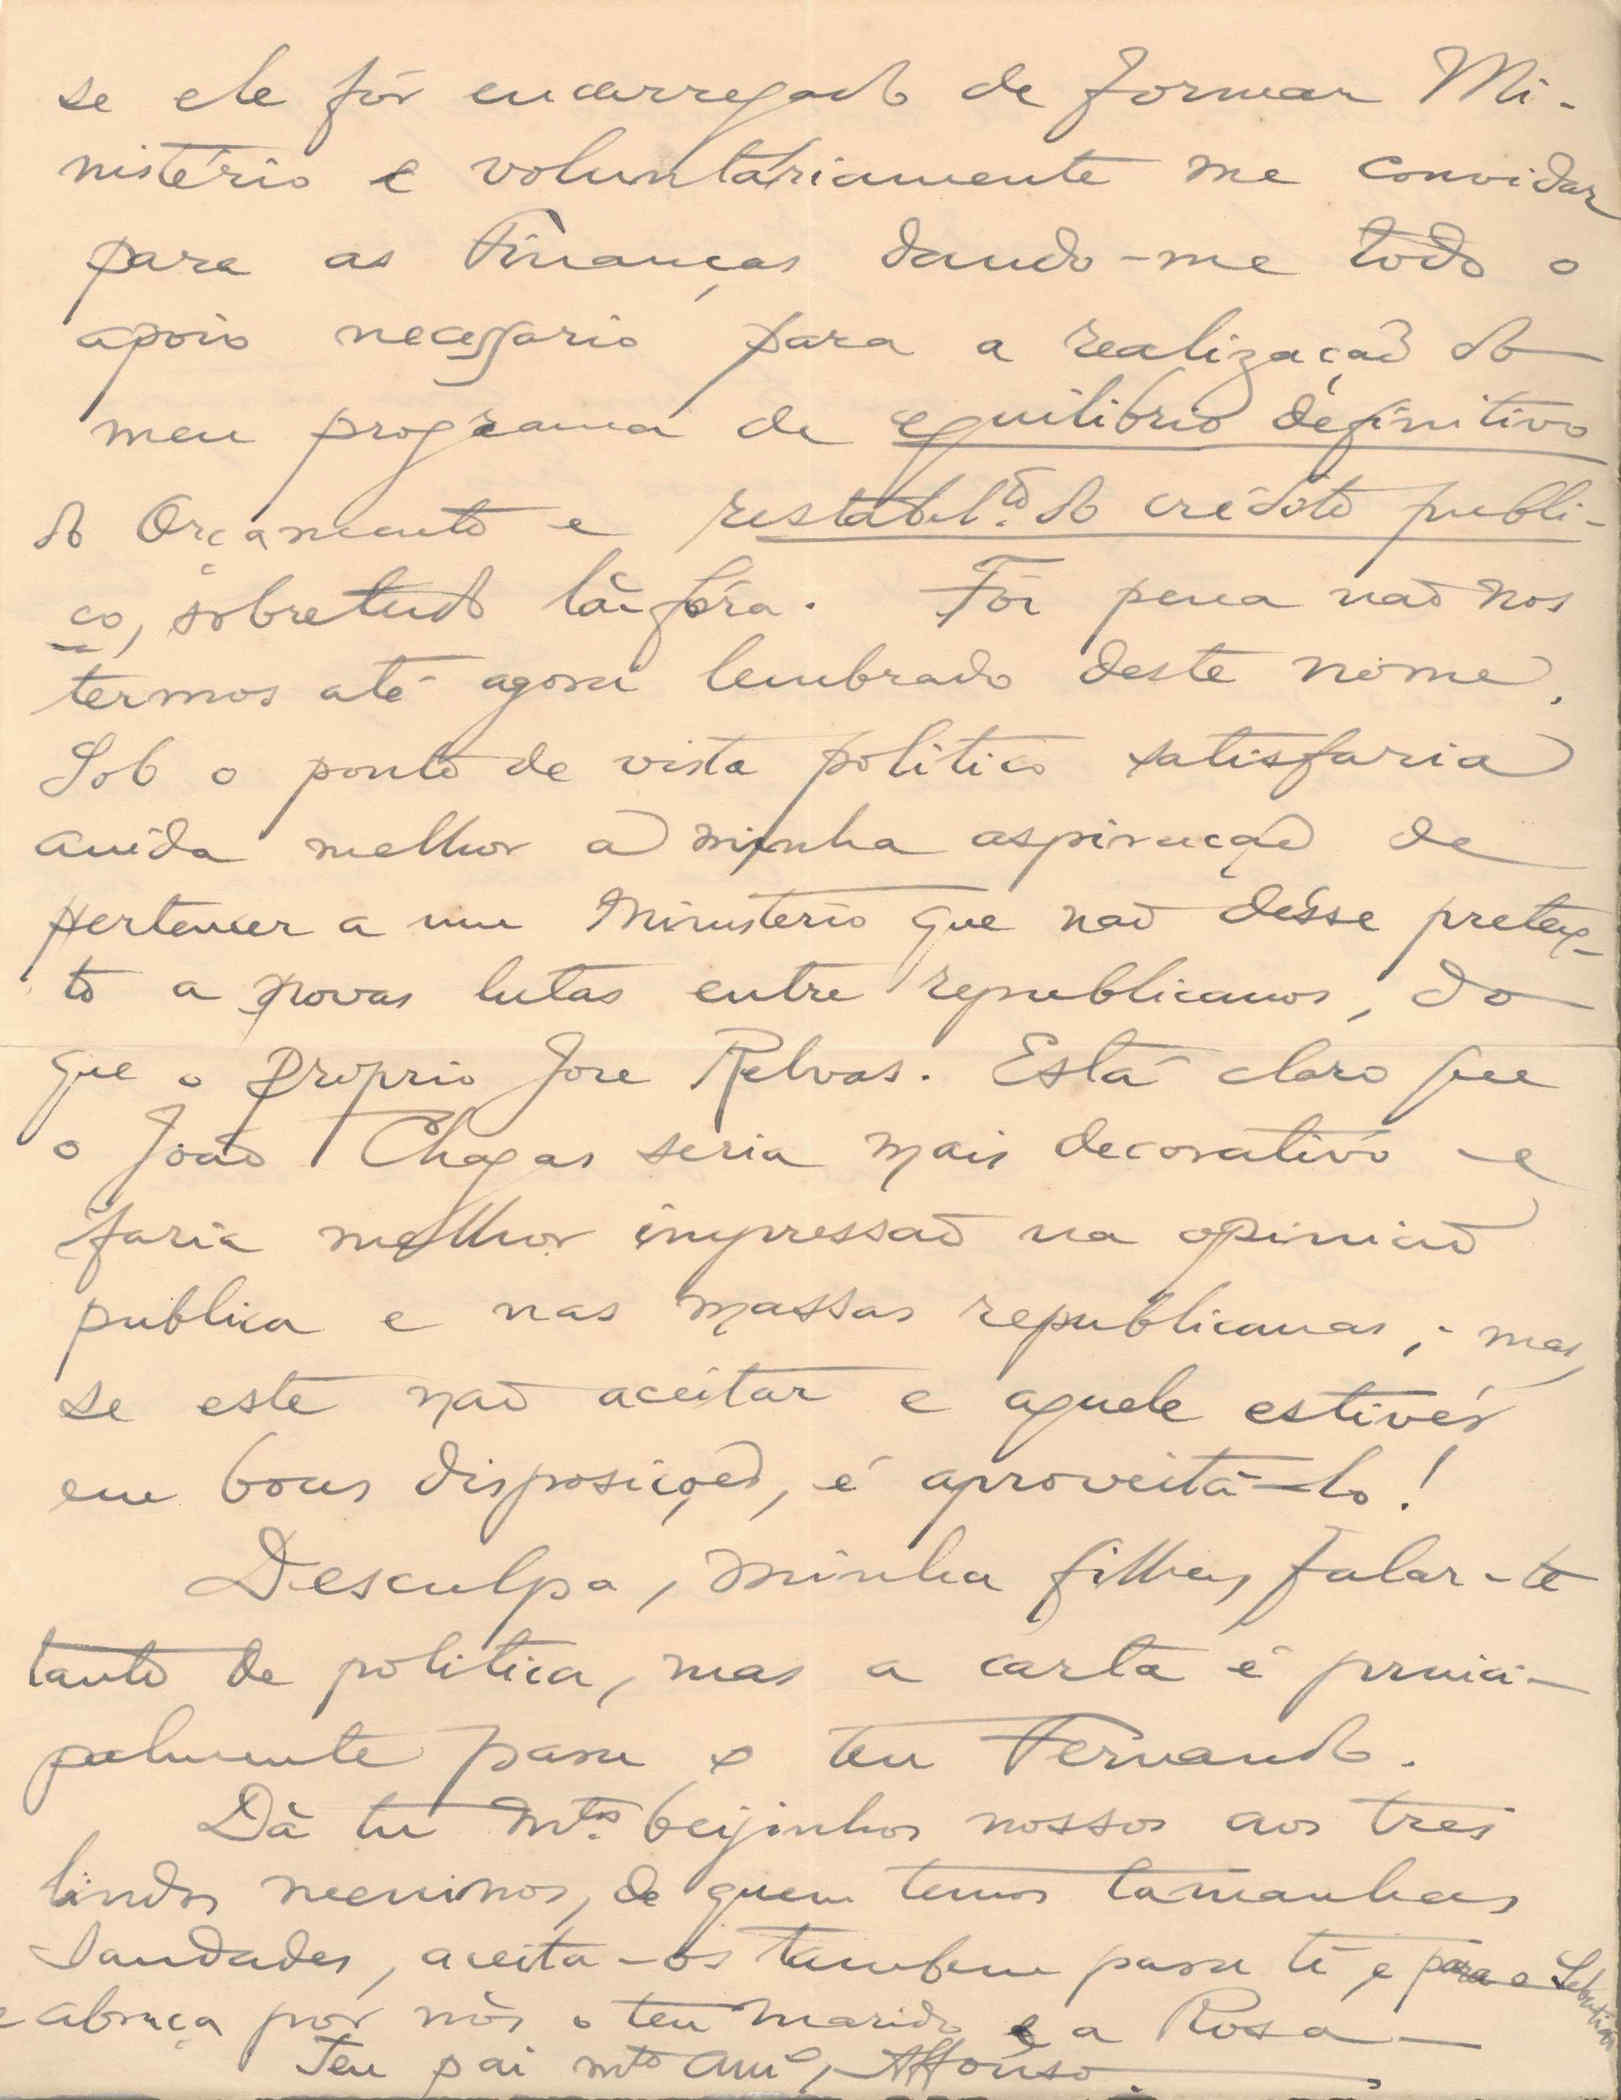 se ele fôr encarregado de formar Mi-
nistério e voluntáriamente me convidar
para as Finanças dando-me todo o
apoio necessario para a realização do
meu programa de equilibrio definitivo
do Orçamento e restabel.to do crédito publi-
co, sobretudo lá fóra. Foi pena não nos
termos até agora lembrado deste nome.
Sob o ponto de vista politico satisfaria
ainda melhor a minha aspiração de
pertencer a um Ministerio que não désse pretex-
to a novas lutas entre republicanos, do
que o proprio José Relvas. Está claro que
o João Chagas seria mais decorativo e
faria melhor impressão na opinião
publica e nas massas republicanas; mas,
se este não aceitar e aquele estivér
em boas disposições, é aproveitá-lo!
Desculpa, minha filha, falar-te
tanto de politica, mas a carta é princi-
palmente para o teu Fernando.
Dá tu m.tos beijinhos nossos aos tres
lindos meninos, de quem temos tamanhas
saudades, aceita-os tambem para ti e para o
e abraça por nós o teu marido e a Rosa
Teu pai mto amo, Affonso.